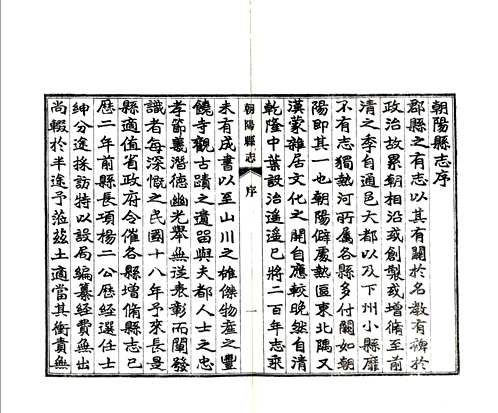 朝陽縣志序
郡縣之有志以其有關於名教有稗於
政治故累朝相沿或創製或增脩至前
清之季自通邑大都以及下州小縣靡
不有志獨熱河所屬各縣多付闕如朝
陽即其一也朝陽僻處熱區東北隅又
漢蒙雜居文化之開自應較晚然自清
乾隆中葉設治遥遥已將二百年志乘
朝陽縣志
序
一
未有成書以至山川之雄傑物產之豐
饒寺觀古蹟之遺留與夫都人士之忠
孝節義潛德幽光舉無從表彰而闡發
識者每深慨之民國十八年予來長是
縣適值省政府令催各縣增脩縣志已
歷二年前縣長項楊二公歷經選任士
紳分途採訪特以設局編纂經費無出
尚輟於半途予蒞茲土適當其衝責無